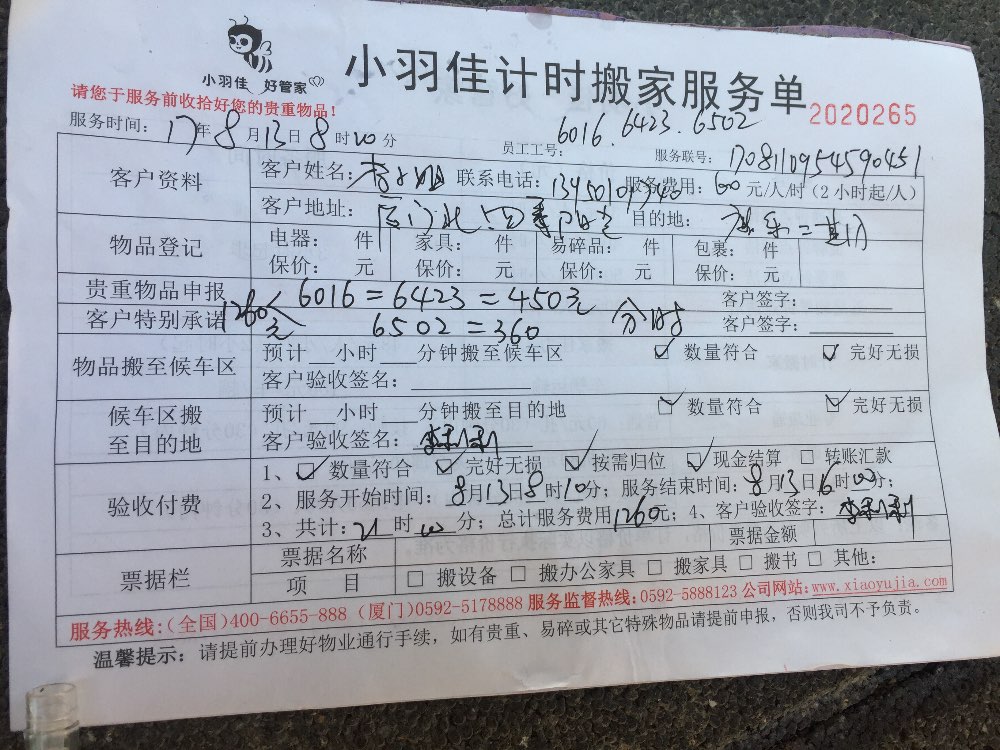 小羽佳 好管家
小羽佳计时搬家服务单
2020265
请您于服务前收拾好您的贵重物品!
服务时间: 17年8月13日8时00分 员工工号: 6016.6423.6502 服务联号: 170811095459045 1
客户资料 客户姓名: 李小姐 联系电话: 服务费用: 60元/人/时(2小时起/人)
客户地址: 目的地:
物品登记 电器: 件 家具: 件 易碎品: 件 包裹: 件
保价: 元 保价: 元 保价: 元 保价: 元
贵重物品申报 6016=6423=450元 客户签字:
客户特别承诺 1260元 6502=360 分时 客户签字:
物品搬至候车区 预计 小时 分钟搬至候车区 数量符合 完好无损
客户验收签名:
候车区搬至目的地 预计 小时 分钟搬至目的地 数量符合 完好无损
客户验收签名:
验收付费 1、数量符合 完好无损 按需归位 现金结算 转账汇款
2、服务开始时间: 8月13日8时10分; 服务结束时间: 8月13日16时00分;
3、共计: 21时00分; 总计服务费用1260元; 4、客户验收签字:
票据栏 票据名称 票据金额
项 目 搬设备 搬办公家具 搬家具 搬书 其他:
服务热线:(全国)400-6655-888 (厦门)0592-5178888 服务监督热线:0592-5888123 公司网站:www.xiaoyujia.com
温馨提示: 请提前办理好物业通行手续, 如有贵重、易碎或其它特殊物品请提前申报, 否则我司不予负责。